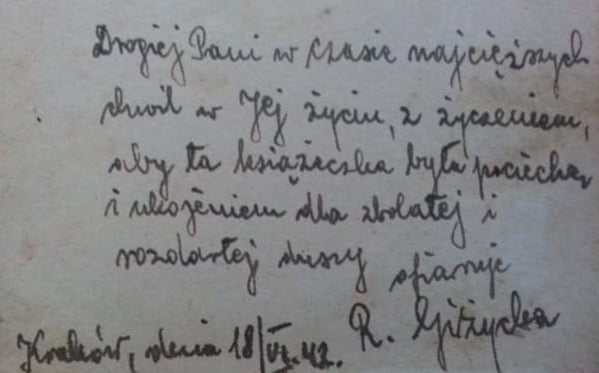 Drogiej Pani w czasie najcięższych
chwil w Jej życiu, z życzeniem,
aby ta książeczka była pociechą
i ukojeniem dla zbolałej i
rozdartej duszy ofiaruje
R. Giżycka
Kraków, dnia 18/VI.42.